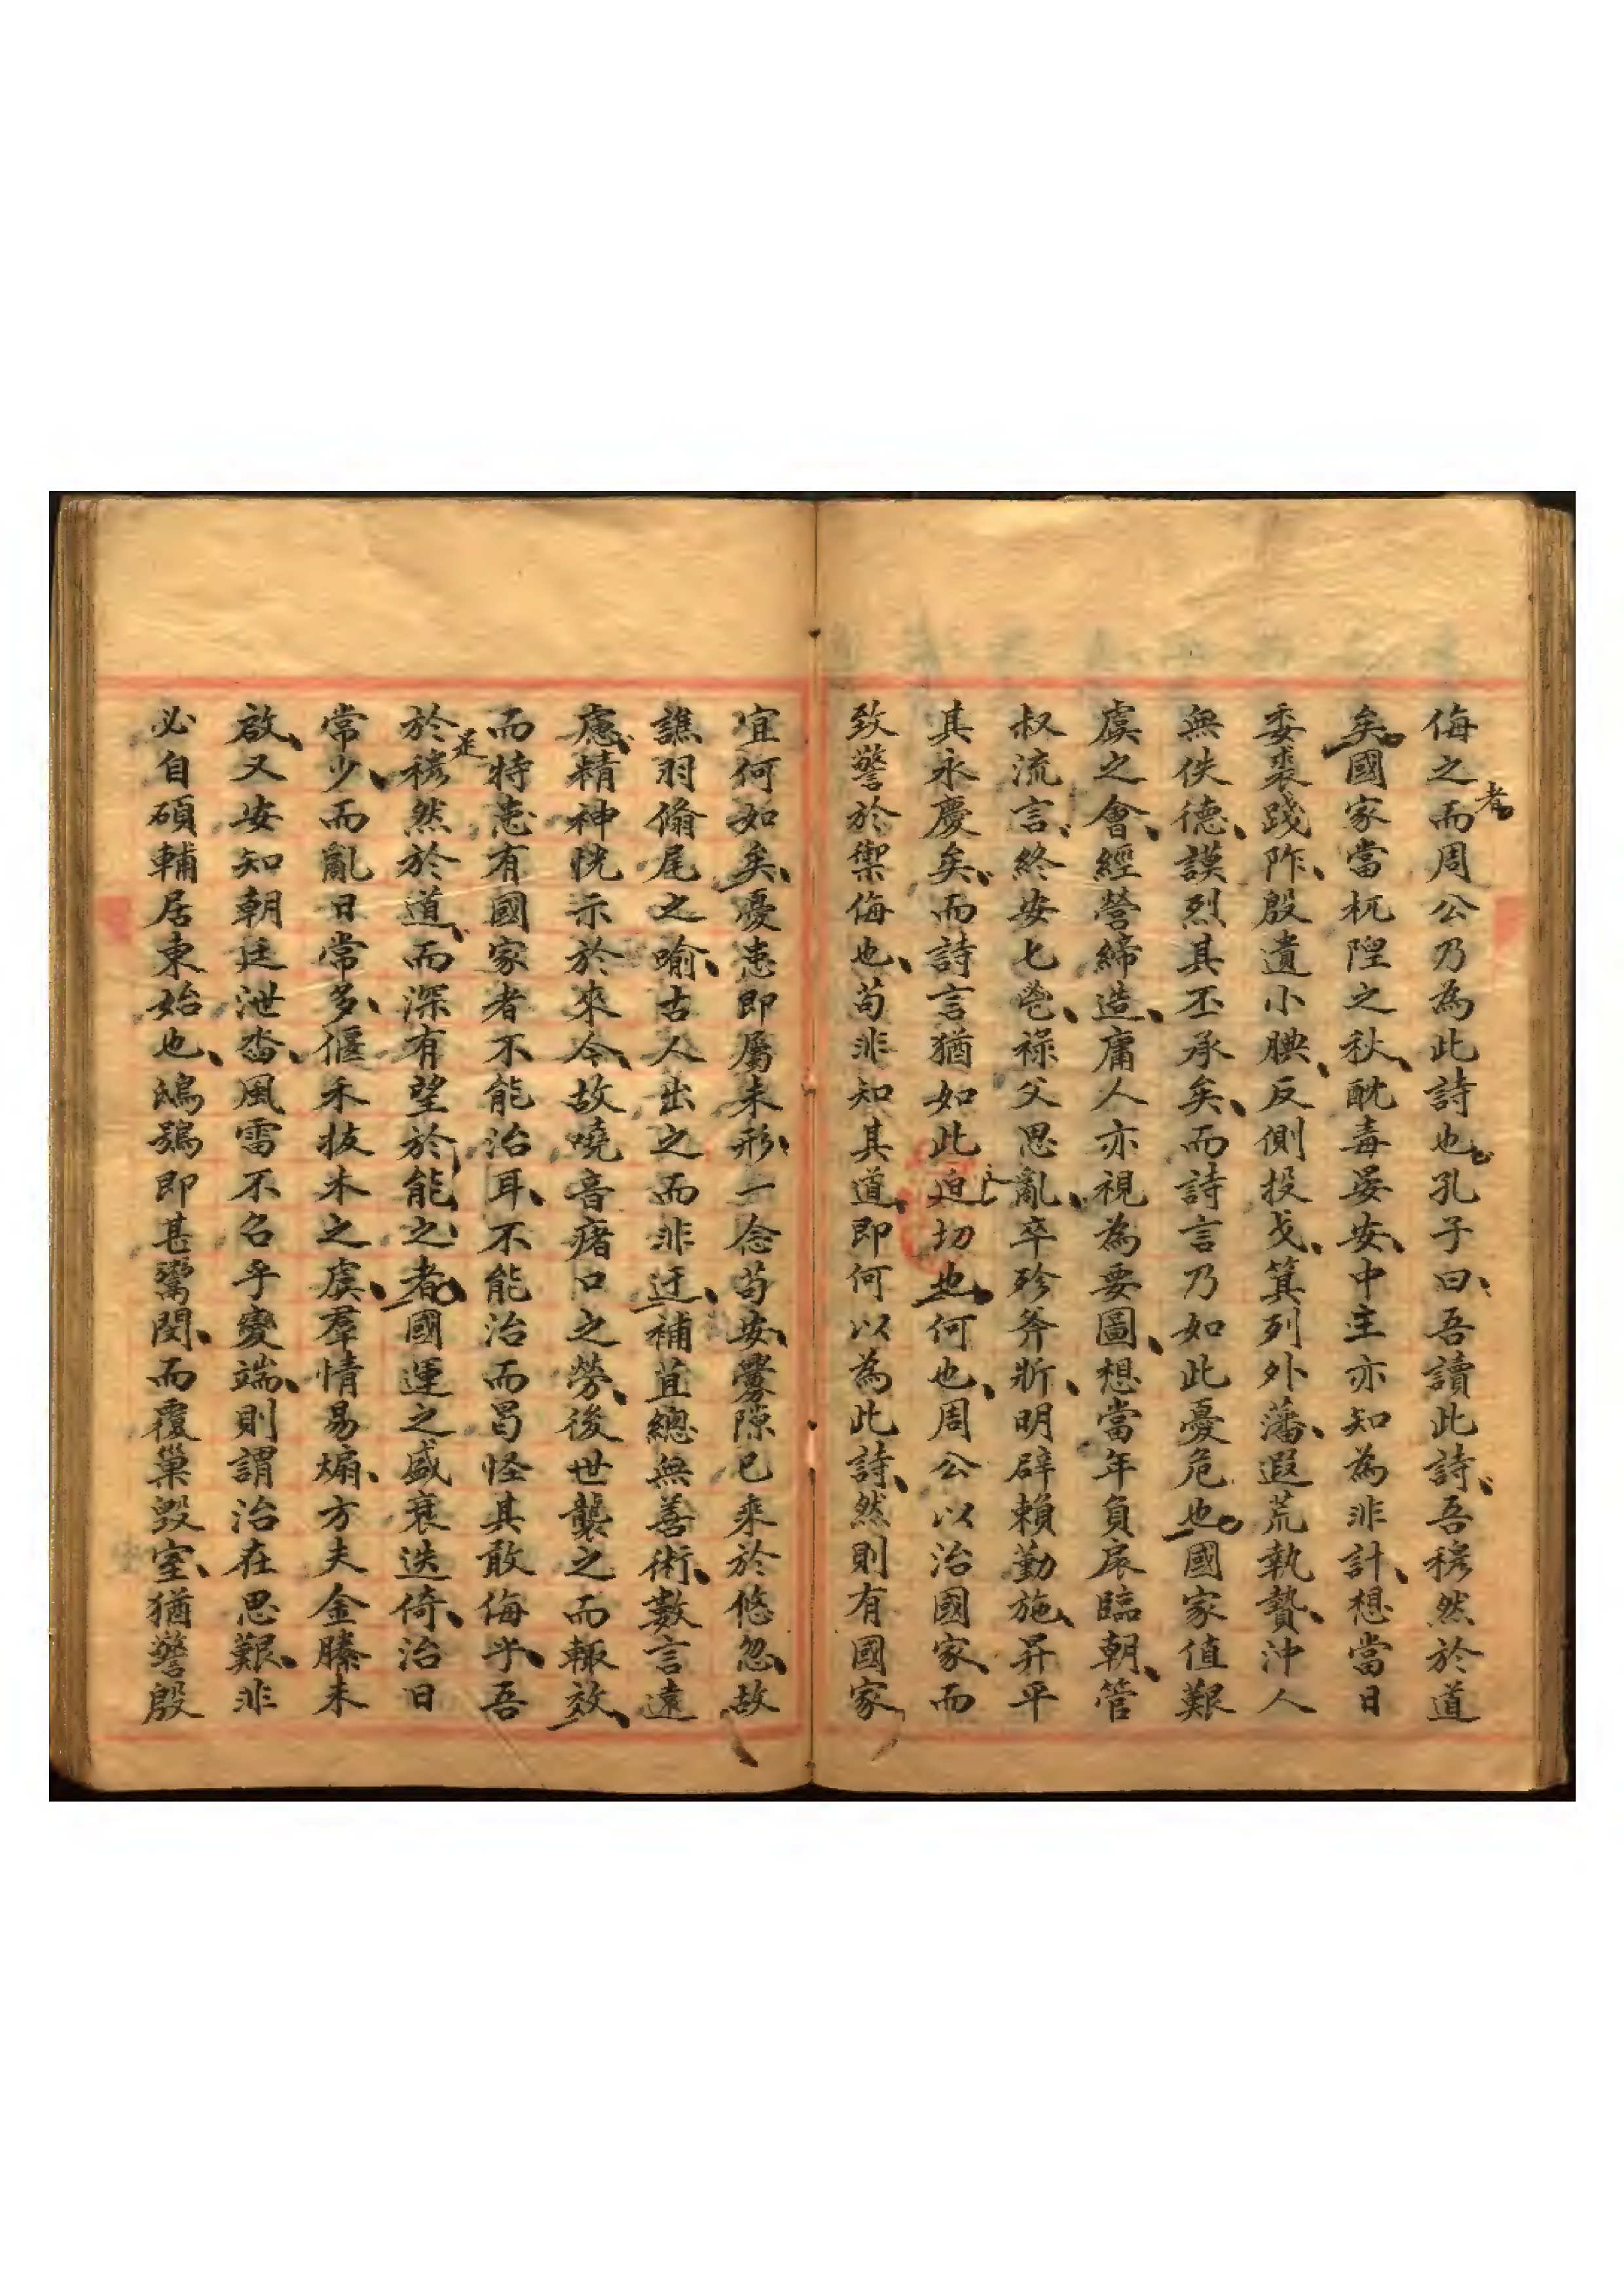 侮之而周公乃為此詩也孔子曰吾讀此詩吾穆然於道
者
矣國家當杌隉之秋酖毒晏安中主亦知為非計想當日
委裘踐阼殷遺小腆反側投戈箕列外藩遐荒執贄沖人
無佚德謨烈其丕承矣而詩言乃如此憂危也國家值艱
虞之會經營締造庸人亦視為要圖想當年負扆臨朝管
叔流言終安七鬯祿父思亂卒殄斧斨明辟賴勤施昇平
其永慶矣而詩言猶如此迫切也何也周公以治國家而
致警於禦侮也苟非知其道即何以為此詩然則有國家
宜何如矣憂患即屬未形一念苟安釁隙已來於悠忽故
譙羽翛尾之喻古人出之而非迂補苴總無善術數言遠
慮精神恍示於來今故嘵音瘏口之勞後世襲之而輒效
而特患有國家者不能治耳不能治而曷怪其敢侮乎吾
是
於穆然於道而深有望於能之者國運之盛衰迭倚治日
常少而亂日常多偃禾拔木之虞羣情易煽方夫金縢未
啟又安知朝廷泄沓風雷不召乎變端則謂治在思艱非
必自碩輔居東始也鴟鴞即甚鬻閔而覆巢毀室猶警殷